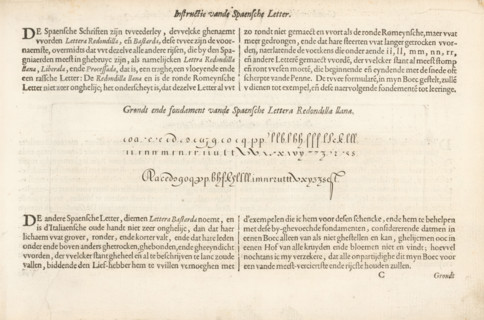 Instructie vande Spaensche Letter.
DE Spaensche Schriften zijn tweederley, dewelcke ghenaemt
worden Lettera Redondilla, en Bastarda, dese twee zijn de voor-
naemste, overmidts dat wt dezelve alle andere rijsen, die by den Spa-
gniaerden meest in ghebruyc zijn, als namelijcken Letera Redondilla
llana, Liberala, ende Processada, dat is, een traghe, een vloeyende ende
een rassche Letter: De Redondilla llana en is de ronde Romeynsche
Letter niet zeer onghelijc, het onderscheyt is, dat dezelve Letter al wt
zo rondt niet gemaeckt en wort als de ronde Romeynsche, maer wat
meer gedrongen, ende dat hare steerten wat langer getrocken wor-
den, naerlatende de voeckens die onder aende ii, ll, mm, nn, rr,
en andere Letteré gemaect wordé, der welcker stant al meest stomp
en ront wesen moeté, die beginnende eñ eyndende met de snede oft
scherpte vande Penne. De twee formulaté, in myn Boec gestelt, zullé
u dienen tot exempel, eñ dese naervolgende foudementé tot leeringe.
Grondt ende foudament vande Spaensche Lettera Redondilla llana.
DE andere Spaensche Letter, diemen Lettera Bastarda noemt, en
is d'Italiensche oude handt niet zeer onghelijc, dan dat haer
lichaem wat grover, ronder, ende korter valt, ende dat hare leden
onder ende boven anders ghetrocken, ghebonden, ende ghereyndicht
worden, der welcker stant gheheel eñ al te beschrijven te lanc zoude
vallen, biddende den Lief-hebber hem te willen vernoeghen met
d'exempelen die ic hem voor desen schencke, ende hem te behelpen
met dese by-ghevoechde fondamenten, considererende datmen in
eenen Boec alleen van als niet ghestellen en kan, ghelijcmen ooc in
eenen Hof van alle kruyden ende bloemen niet en vindt; hoewel
nochtans ic my verzekere, dat alle onpartijdighe dit myn Boec voor
een vande meest-verciertste ende rijcste houden zullen.
C
Grondt